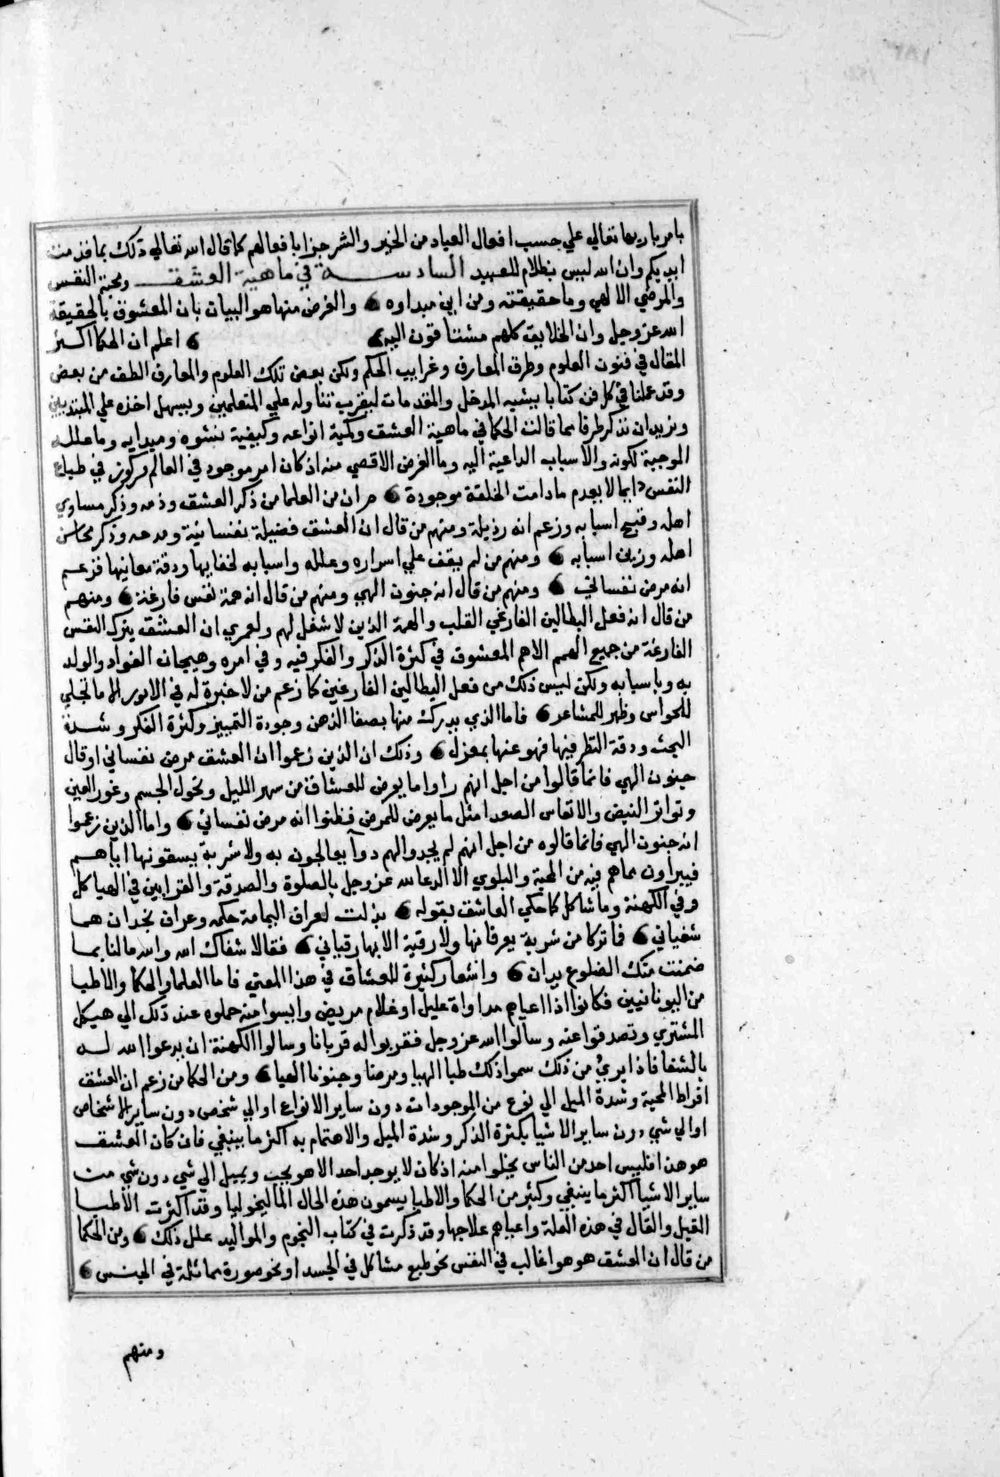 بامر باريها تعالي علي حسب افعال العباد من الخير والشر جزا بافعالهم كما قال الله تعالي ذلك بما قدمت
ايديكم وان الله ليس بظلام للعبيد السادسة في ماهية العشق ومحبة النفس
والمرض الالهي وما حقيقته ومن اين مبداوه ۞ والغرض منها هو البيان بان المعشوق بالحقيقة
الله عز وجل وان الخلايق كلهم مشتاقون اليه ۞ اعلم ان الحكما اكثر
المقال في فنون العلوم وطرق المعارف وغرايب الحكم ولكن بعض تلك العلوم والمعارف الطف من بعض
وقد عملنا في كل فن كتابا يشبه المدخل والمقدمات ليقرب تناوله علي المتعلمين ويسهل اخذه علي المبتديين
ونريد ان نذكر طرفا مما قالت الحكما في ماهية العشق وكمية انواعه وكيفية نشوه ومبدايه وما علله
الموجبة لكونه والاسباب الداعية اليه وما الغرض الاقصي منه اذ كان امر موجود في العالم مركوز في طباع
النفس دايما لا يعدم ما دامت الخلقة موجودة ۞ ان من العلما من ذكر العشق وذمه وذكر مساوي
اهله وقبح اسبابه وزعم انه رذيلة ومنهم من قال ان العشق فضيلة نفسانية ومدحه وذكر محاسن
اهله وزين اسبابه ۞ ومنهم من لم يقف علي اسراره وعلله واسبابه لخفايها ودقة معانيها فزعم
انه مرض نفساني ۞ ومنهم من قال انه جنون الهي ومنهم من قال انه همة نفس فارغة ۞ ومنهم
من قال انه فعل البطالين الفارغي القلب والهمة الذين لا شغل لهم ولعمري ان العشق يترك النفس
الفارغة من جميع الهمم الا هم المعشوق في كثرة الذكر والفكر فيه وفي امره وهيجان الفواد والوله
به وباسبابه ولكن ليس ذلك من فعل البطالين الفارغين كما زعم من لا خبرة له في الامور الا ما تجلي
للحواس وظهر للمشاعر ۞ فاما الذي يدرك منها بصفا الذهن وجودة التمييز وكثرة الفكر وشدة
البحث ودقة النظر فيها فهو عنها بمعزل ۞ وذلك ان الذين زعموا ان العشق مرض نفساني او قال
جنون الهي فانما قالوا من اجل انهم راوا ما يعرض للعشاق من سهر الليل ونحول الجسم وغور العين
وتواتر النبض والانفاس الصعدا مثل ما يعرض للمرض فظنوا انه مرض نفساني ۞ واما الذين زعموا
انه جنون الهي فانما قالوه من اجل انهم لم يجدوا لهم دوآ يعالجون به ولا شربة يسقونها اياهم
فيبراون مما هم فيه من المحبة والبلوي الا الدعا لله عز وجل بالصلوة والصدقة والقرابين في الهياكل
وفي الكهنة وما شاكل كما حكي العاشق بقوله ۞ بذلت لعراف اليمامة حكمه وعراف نجد ان هما
شفياني ۞ فما تركا من شربة يعرفانها ولا رقية الا بها رقياني ۞ فقالا شفاك الله والله ما لنا بما
ضمنت منك الضلوع يدان ۞ واشعار كثيرة للعشاق في هذا المعني فاما العلما والحكما والاطبا
من اليونانيين فكانوا اذا اعياهم مداواة عليل او غلام مريض وايسوا منه حملوه عند ذلك الي هيكل
المشتري وتصدقوا عنه وسالوا الله عز وجل فقربوا له قربانا وسالوا الكهنة ان يدعوا الله له
بالشفا فاذا بري من ذلك سموا ذلك طبا الهيا ومرضا وجنونا الهيا ۞ ومن الحكما من زعم ان العشق
افراط المحبة وشدة الميل الي نوع من الموجودات دون ساير الانواع او الي شخص دون ساير الاشخاص
او الي شي دون ساير الاشيا بكثرة الذكر وشدة الميل والاهتمام به اكثر ما ينبغي فان كان العشق
هو هذا فليس احد من الناس يخلوا منه اذ كان لا يوجد احد الا هو يحب ويميل الي شي دون شي من
ساير الاشيا اكثر ما ينبغي وكثير من الحكما والاطبا يسمون هذه الحال الماليخوليا وقد اكثرت الاطبا
القيل والقال في هذه العلة واعياهم علاجها وقد ذكرت في كتاب النجوم والمواليد علل ذلك ۞ ومن الحكما
من قال ان العشق هو هوا غالب في النفس نحو طبع مشاكل في الجسد او نحو صورة مماثلة في الجنس ۞
ومنهم